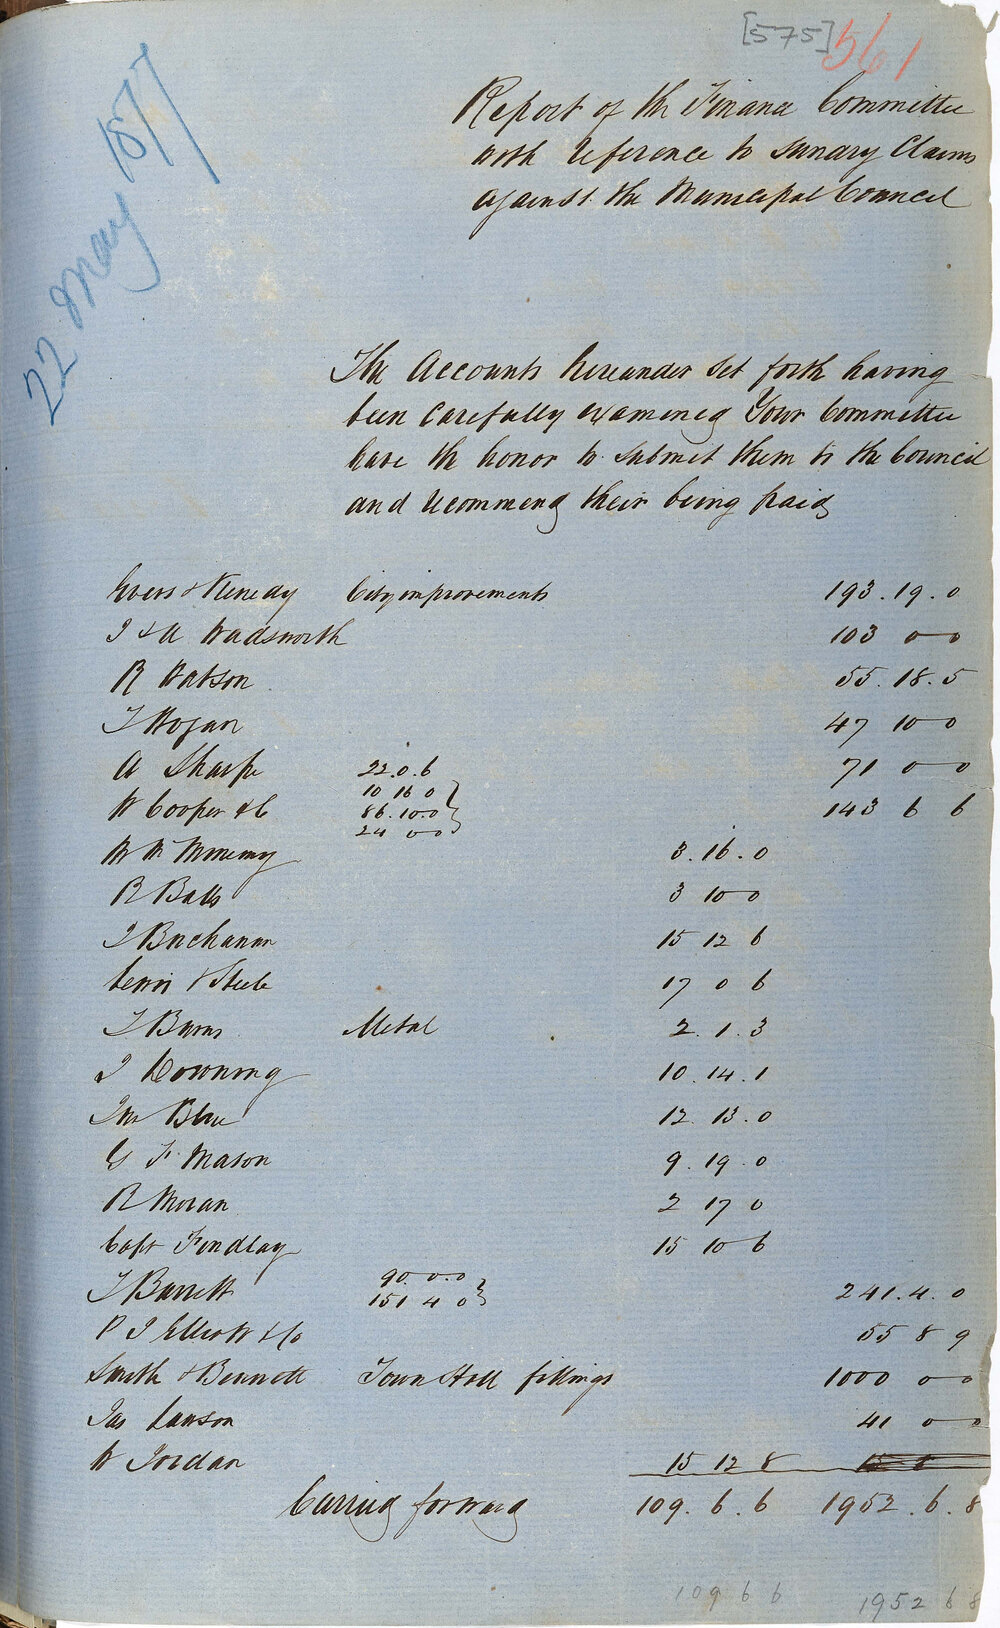 [575] 561
22 May 1877
Report of the Finance Committee
with reference to sundry Claims
against the Municipal Council
The Accounts hereunder set forth having
been carefully examined Your Committee
have the honor to submit them to the Council
and recommend their being paid
& Kenedy City improvements 193.19.0
J & A Wadsworth 103 0 0
R Watson 55.18.5
T Hogan 47 10 0
A Sharpe 71 0 0
22.0.6
10 16 0
W Cooper & C 86.10.0 143 6 6
24 0 0
W M 3.16.0
R Balls 3 10 0
J Buchanan 15 12 6
Lewis & Steele 17 0 6
T Burns Metal 2.1.3
J Downing 10.14.1
Jno Blue 12.13.0
G F Mason 9.19.0
R Moran 2 17 0
Capt Findlay 15 10 6
90.0.0
T Barrett 151 4 0 241.4.0
P J Elliott & Co 55 8 9
Smith & Bennett Town Hall fittings 1000 0 0
Jas Lawson 41 0 0
W Jordan 15 12 8
Carried forward 109.6.6 1952.6.8
109 6 6 1952 6 8